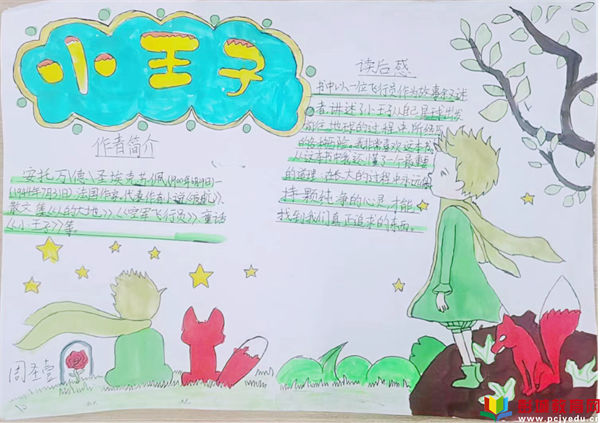 小王子
作者简介
安托万·德·圣埃克苏佩(1900年6月29日—
1944年7月31日)法国作家,代表作有小说《夜航》,
散文集《人的大地》《空军飞行员》童话
《小王子》等。
读后感
书中以一位飞行员作为故事叙述
者,讲述了小王子从自己星球出发
前往地球的过程中,所经历
的各种历险。我非常喜欢这本书
从这本书中我还懂了一个最重要
的道理,在长大的过程中永远保
持一颗纯净的心灵才能
找到我们真正追求的东西。
周圣壹
www.pcjyedu.cn